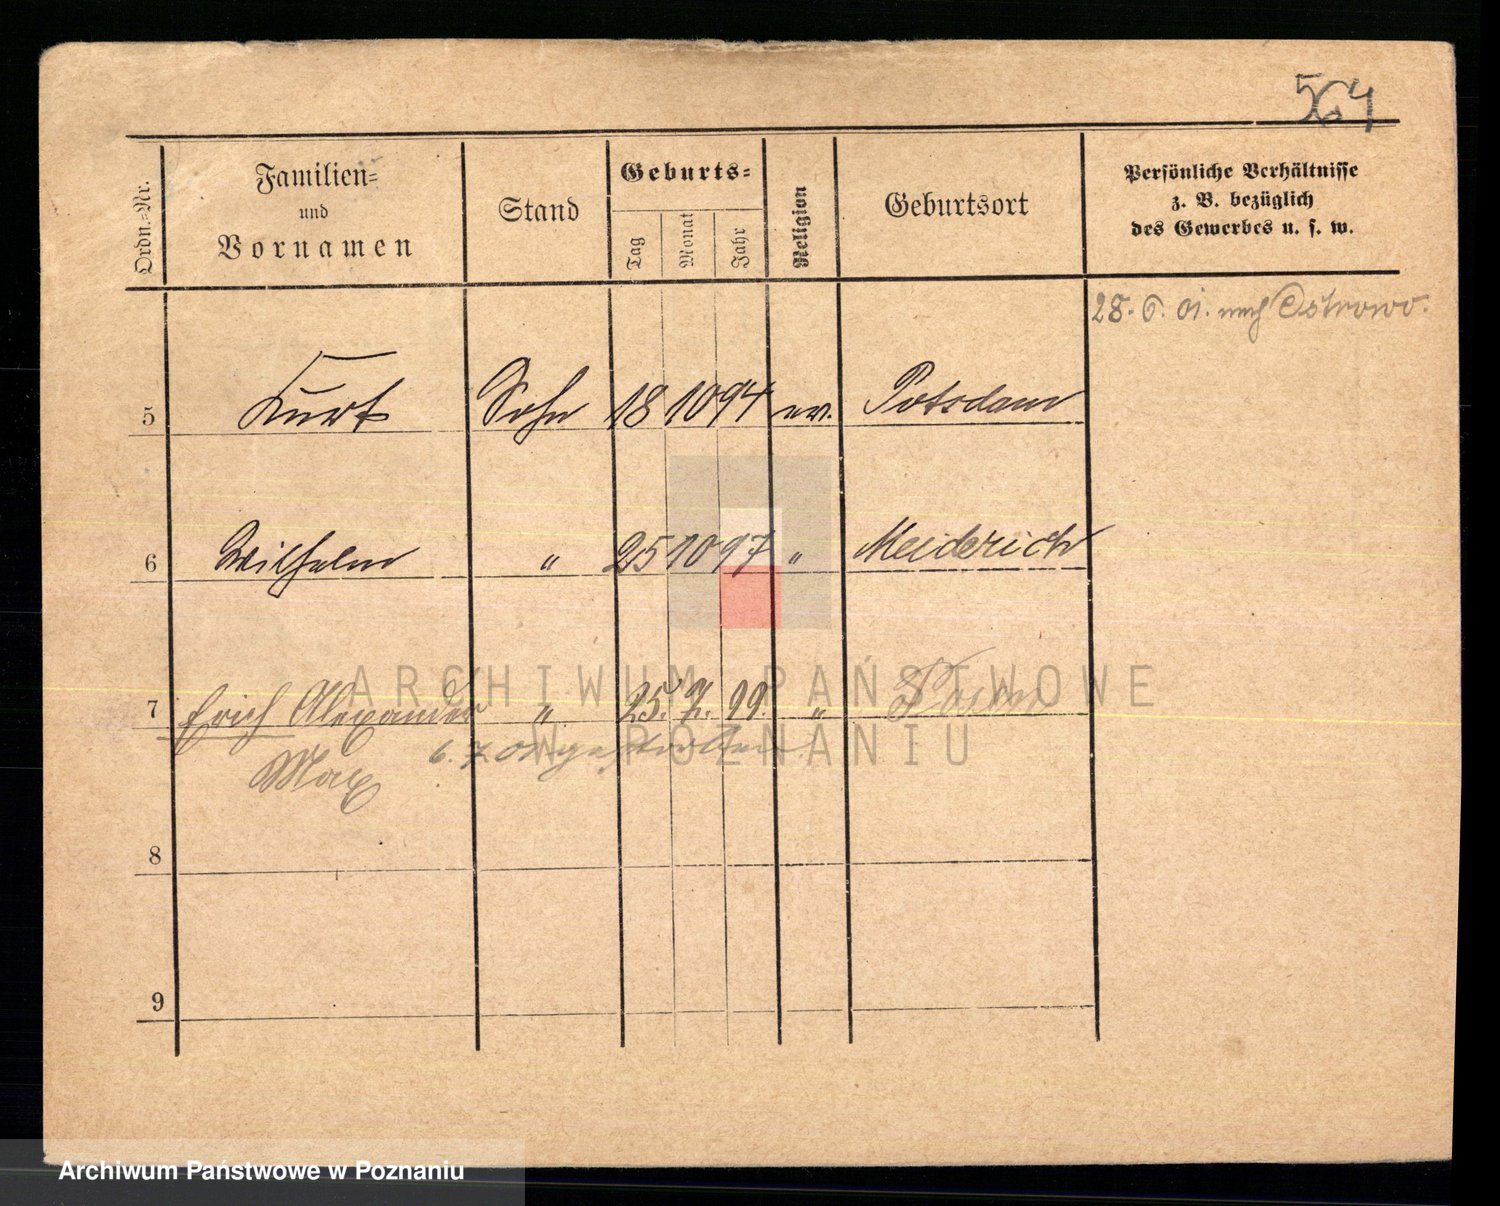 564
Ordn.-Nr.
Familien-
und
Vornamen
Stand
Geburts-
Tag
Monat
Jahr
Religion
Geburtsort
Persönliche Verhältnisse
z. B. bezüglich
des Gewerbes u. s. w.
28. 6. 01. nach Ostrowo.
5 Kurt Sohn 18 10 94 ev. Potsdam
6 Wilhelm " 25 10 97 " Meiderich
7 Erich Alexander " 25. 7. 99. " Posen
Max
6. 7. gestorben
8
9
ARCHIWUM PAŃSTWOWE
W POZNANIU
Archiwum Państwowe w Poznaniu